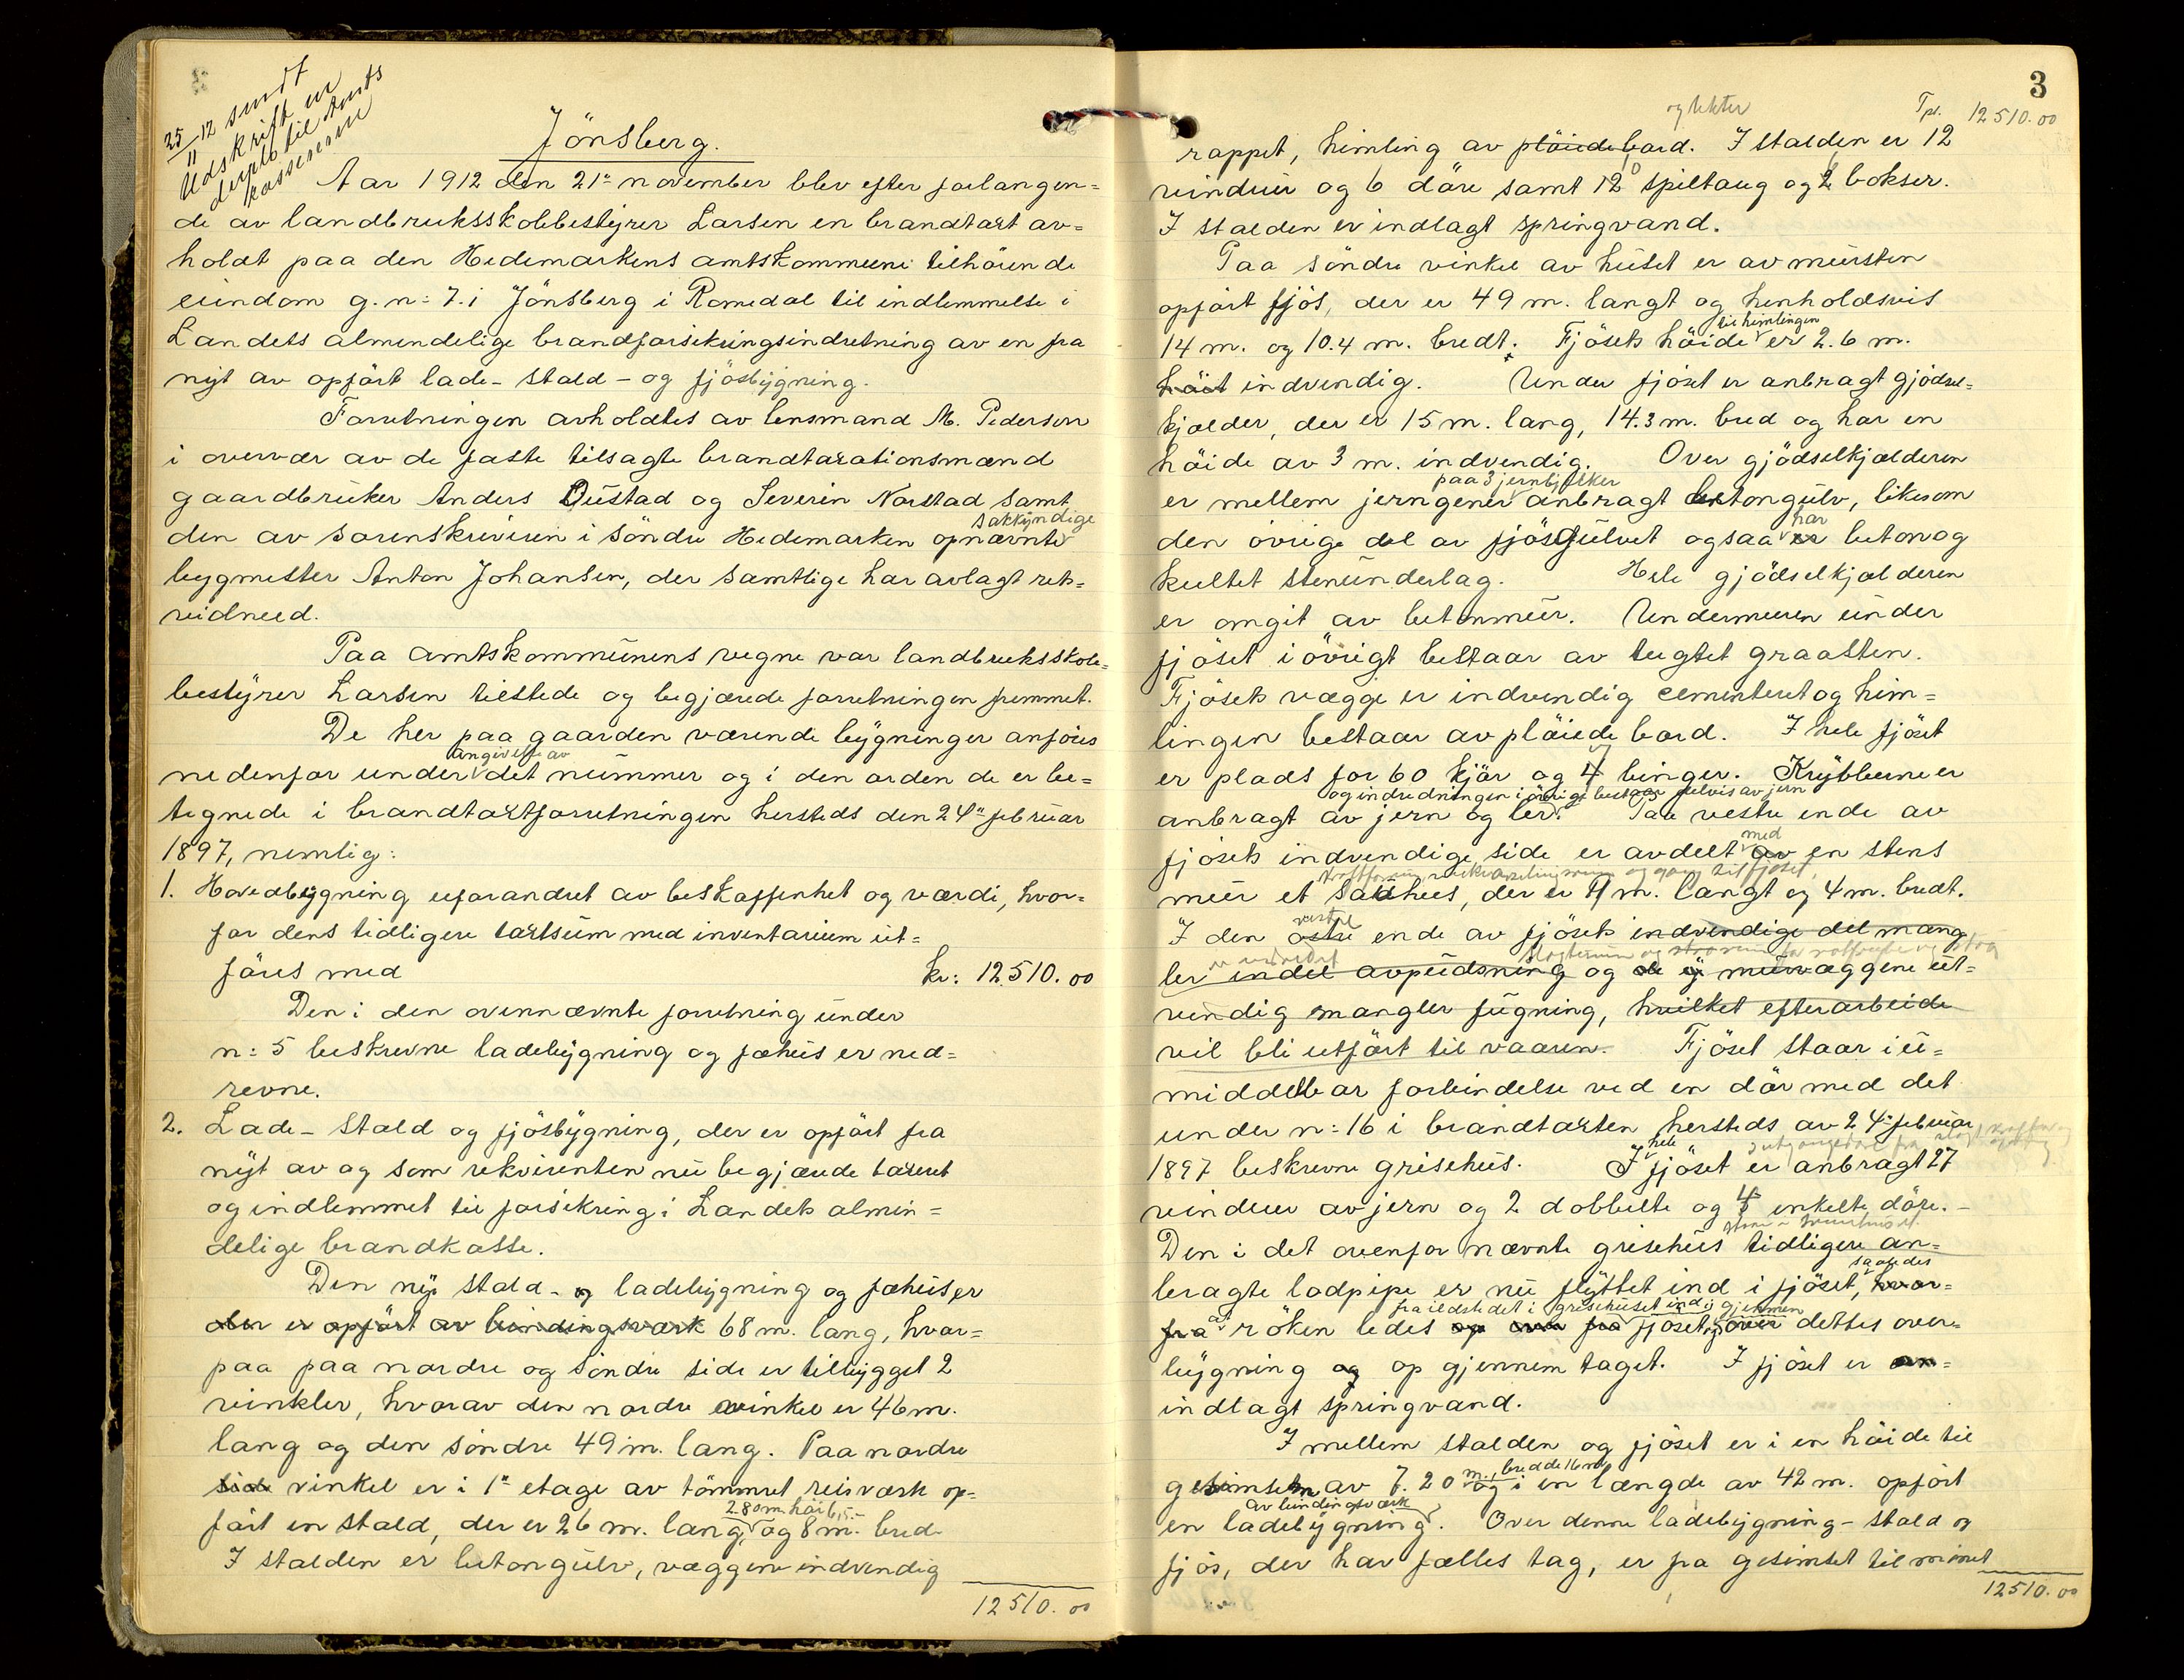 25/11-12 sendt
Utskrift av
til Amts
kassereren
Jönsberg.
Aar 1912 den 21de november blev efter forlangen=
de av landbruksskolebestyrer Larsen en brandtaxt av=
holdt paa den Hedemarkens amtskommune tilhörende
eiendom g.n: 7.1 Jönsberg i Romedal til indlemmelse i
Landets almindelige brandforsikringsindretning av en fra
nyt av opfört lade- stald- og fjösbygning.
Forretningen avholdtes av lensmand M. Pedersen
i overvær av de faste tilsagte brandtaxationsmænd
gaardbruker Anders Dustad og Severin Norstad samt
sakkyndige
den av sorenskriveren i söndre Hedemarken opnævnte
bygmester Anton Johansen, der samtlige har avlagt rets=
vidneed.
Paa amtskommunens vegne var landbruksskole=
bestyrer Larsen tilstede og begjærede forretningen fremmet.
De her paa gaarden værende bygninger anföres
angivelse av
nedenfor under det nummer og i den orden de er be=
tegnede i brandtaxtforretningen hersteds den 24de februar
1897, nemlig:
1. Hovedbygning uforandret av beskaffenhet og værdi, hvor=
for dens tidligere taxtsum med inventarium ut=
föres med kr: 12510.00
Den i den ovennævnte forretning under
n: 5 beskrevne ladebygning og fæhus er ned=
revne.
2. Lade- stald og fjösbygning, der er opfört fra
nyt av og som rekvirenten nu begjærede taxeret
og indlemmet til forsikring i Landets almin=
delige brandkasse.
Den nye stald- og ladebygning og fæhus er
der er opfört av bindingsværk 68 m. lang, hvor=
paa paa nordre og söndre side er tilbygget 2
vinkler, hvorav den nordre vinkel er 46 m.
lang og den söndre 49 m. lang. Paa nordre
side vinkel er i 1ste etage av tömmret reisværk op=
2.80 m. höi
fört en stald, der er 26 m. lang og 8 m. bred
I stalden er betongulv, væggene indvendig
12510.00
3
og lekter
Tp. 12510.00
rappet, himling av plöiede bord. I stalden er 12
vinduer og 6 döre samt 12 spiltaug og 2 bokser.
I stalden er indlagt springvand.
Paa söndre vinkel av huset er av mursten
opfört fjös, der er 49 m. langt og henholdsvis
til himlingen
14 m. og 10.4 m. bredt. Fjösets höide er 2.6 m.
höit indvendig. Under fjöset er anbragt gjödsel=
kjælder, der er 15 m. lang, 14.3 m. bred og har en
höide av 3 m. indvendig. Over gjödselkjælderen
paa 3 jernbjelker
er mellem jerngener anbragt betongulv, likesom
har
den övrige del av fjösgulvet ogsaa er beton og
kultet stenunderlag. Hele gjödselkjælderen
er omgit av betonmur. Undermuren under
fjöset i övrigt bestaar av tugtet graasten.
Fjösets vægge er indvendig cementeret og him=
lingen bestaar av plöiede bord. I hele fjöset
er plads for 60 kjör og 4 binger. Krybberne er
og indredningen i övrige bestaar delvis av jern
anbragt av jern og ler. Paa vestre ende av
med
fjösets indvendige side er avdelt av en stens
mur et sauhus, der er 9 m. langt og 4 m. bredt.
vestre
I den östre ende av fjösets indvendige del mang
ler indel avpudsning og de y murvæggene ut=
vendig mangler fugning, hvilket efterarbeide
vil bli utfört til vaaren. Fjöset staar i u=
middelbar forbindelse ved en dör med det
under n: 16 i brandtaxten hersteds av 24de februar
hele
1897 beskrevne grisehus. I fjöset er anbragt 27
vinduer av jern og 2 dobbelte og 4 enkelte döre.
Den i det ovenfor nævnte grisehus tidligere an=
saaledes
bragte lodpipe er nu flyttet ind i fjöset, hvor=
fra ildstedet i grisehuset ind i gjennem
fra at röken ledes op fjöset, over dettes over=
bygning og op gjennem taget. I fjöset er an=
indlagt springvand.
I mellem stalden og fjöset er i en höide til
m., bredde 16 m
gesimsen av 7.20 og i en længde av 42 m. opfört
av bindingsværk
en ladebygning. Over denne ladebygning- stald og
fjös, der har fælles tag, er fra gesimset til mönet
12510.00